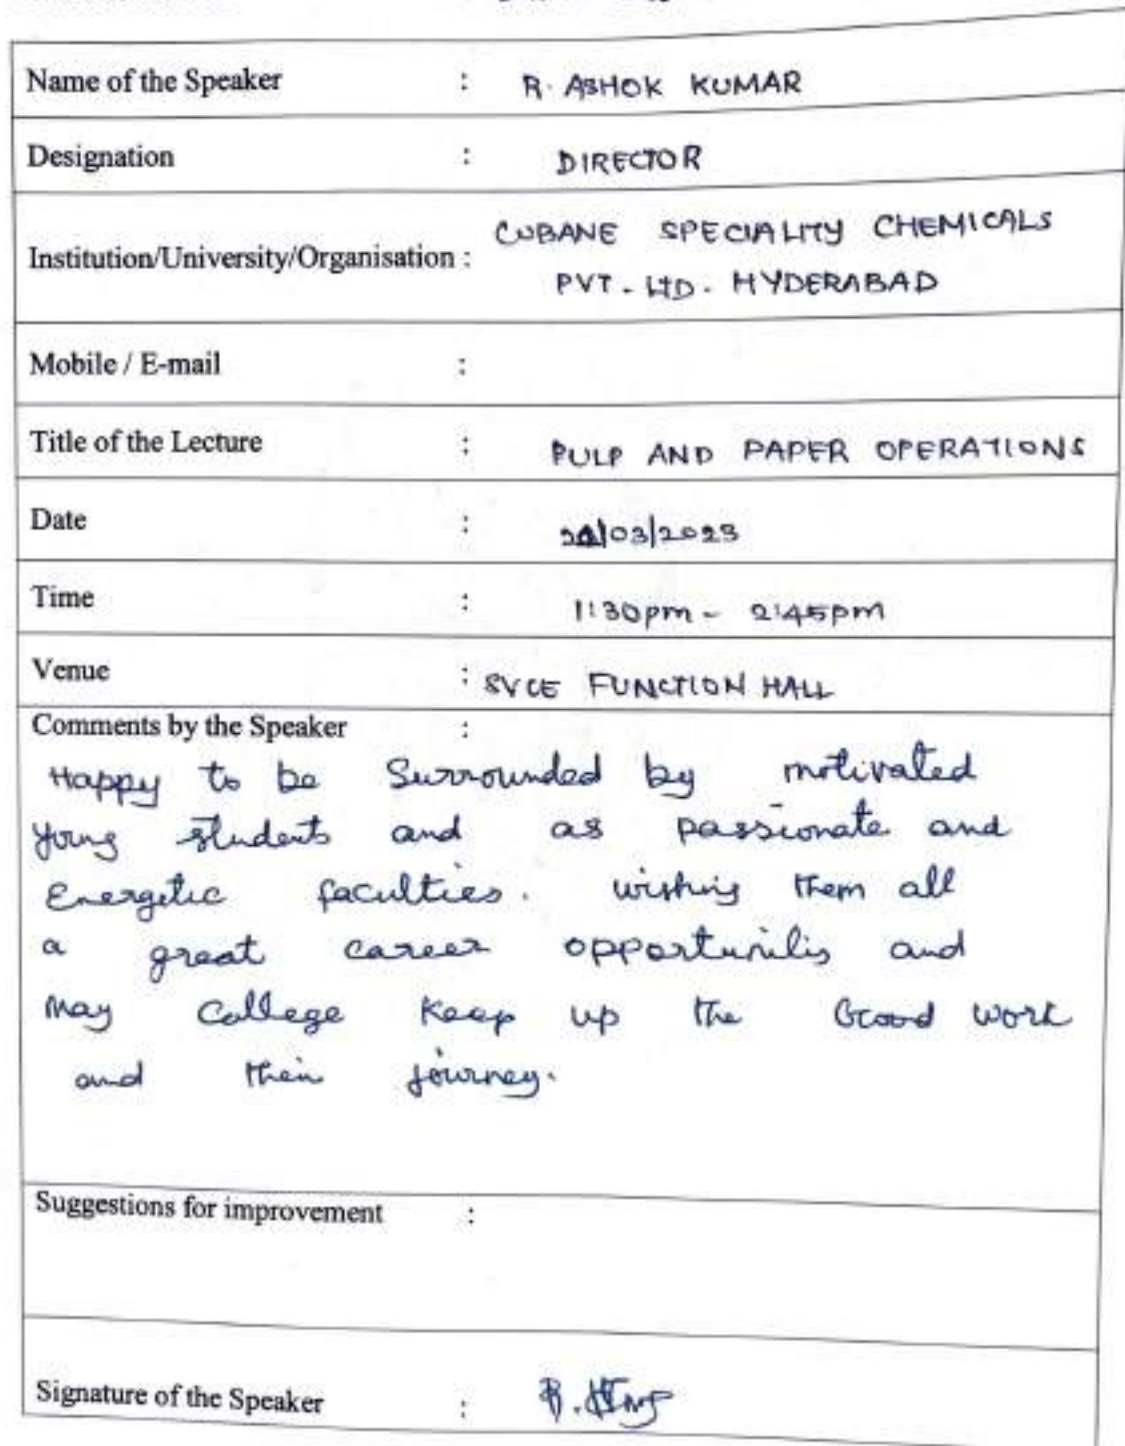 Name of the Speaker : R. ASHOK KUMAR
Designation : DIRECTOR
CUBANE SPECIALITY CHEMICALS
Institution/University/Organisation :
PVT. LTD. HYDERABAD
Mobile / E-mail :
Title of the Lecture : PULP AND PAPER OPERATIONS
Date : /03/2023
Time : 1:30pm - 2:45pm
Venue : SVCE FUNCTION HALL
Comments by the Speaker :
Happy to be Surrounded by motivated
young students and as passionate and
Energetic faculties. wishing them all
a great career opportunitis and
May College Keep up the Good work
and their journey.
Suggestions for improvement :
Signature of the Speaker :